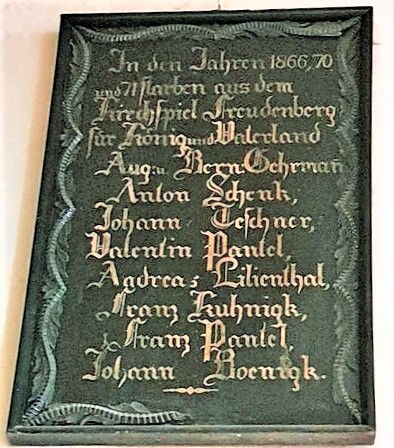 In den Jahren 1866, 70
und 71 starben aus dem
Kirchspiel Freudenberg
für König und Vaterland
Aug. u. Bern. Gehrman
Anton Schenk,
Johann Teschner,
Valentin Pantel,
Andreas Lilienthal,
Franz Kuhnigk,
Franz Pantel,
Johann Boenigk.